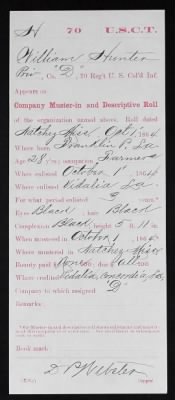 H 70 U.S.C.T.
William Hunter
Priv., Co. "D", 70 Reg't U. S. Col'd Inf.
Appears on
Company Muster-in and Descriptive Roll
of the organization named above. Roll dated
Natchez Miss Oct 1, 1864.
Where born Franklin P. La
Age 28 y'rs; occupation Farmer
When enlisted October 1, 1864
Where enlisted Vidalia La
For what period enlisted 3 years.
Eyes Black; hair Black
Complexion Black; height 5 ft. 11 in.
When mustered in October 1, 1864.
Where mustered in Natchez Miss
Bounty paid $ None; due $ All
Where credited Vidalia, Concordia, La.
Company to which assigned "D"
Remarks:
Book mark:
D P Webster
Copyist.